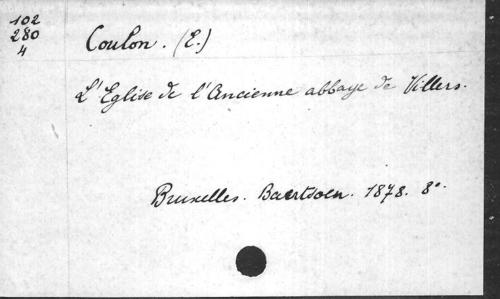 102
280
4
Coulon. (E.)
L'Eglise de l'Ancienne abbaye de Villers.
Bruxelles. Baertsoen. 1878. 8°.